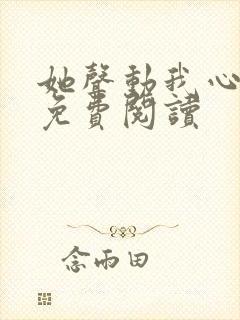 她聲動我心
免費閱讀
念雨田